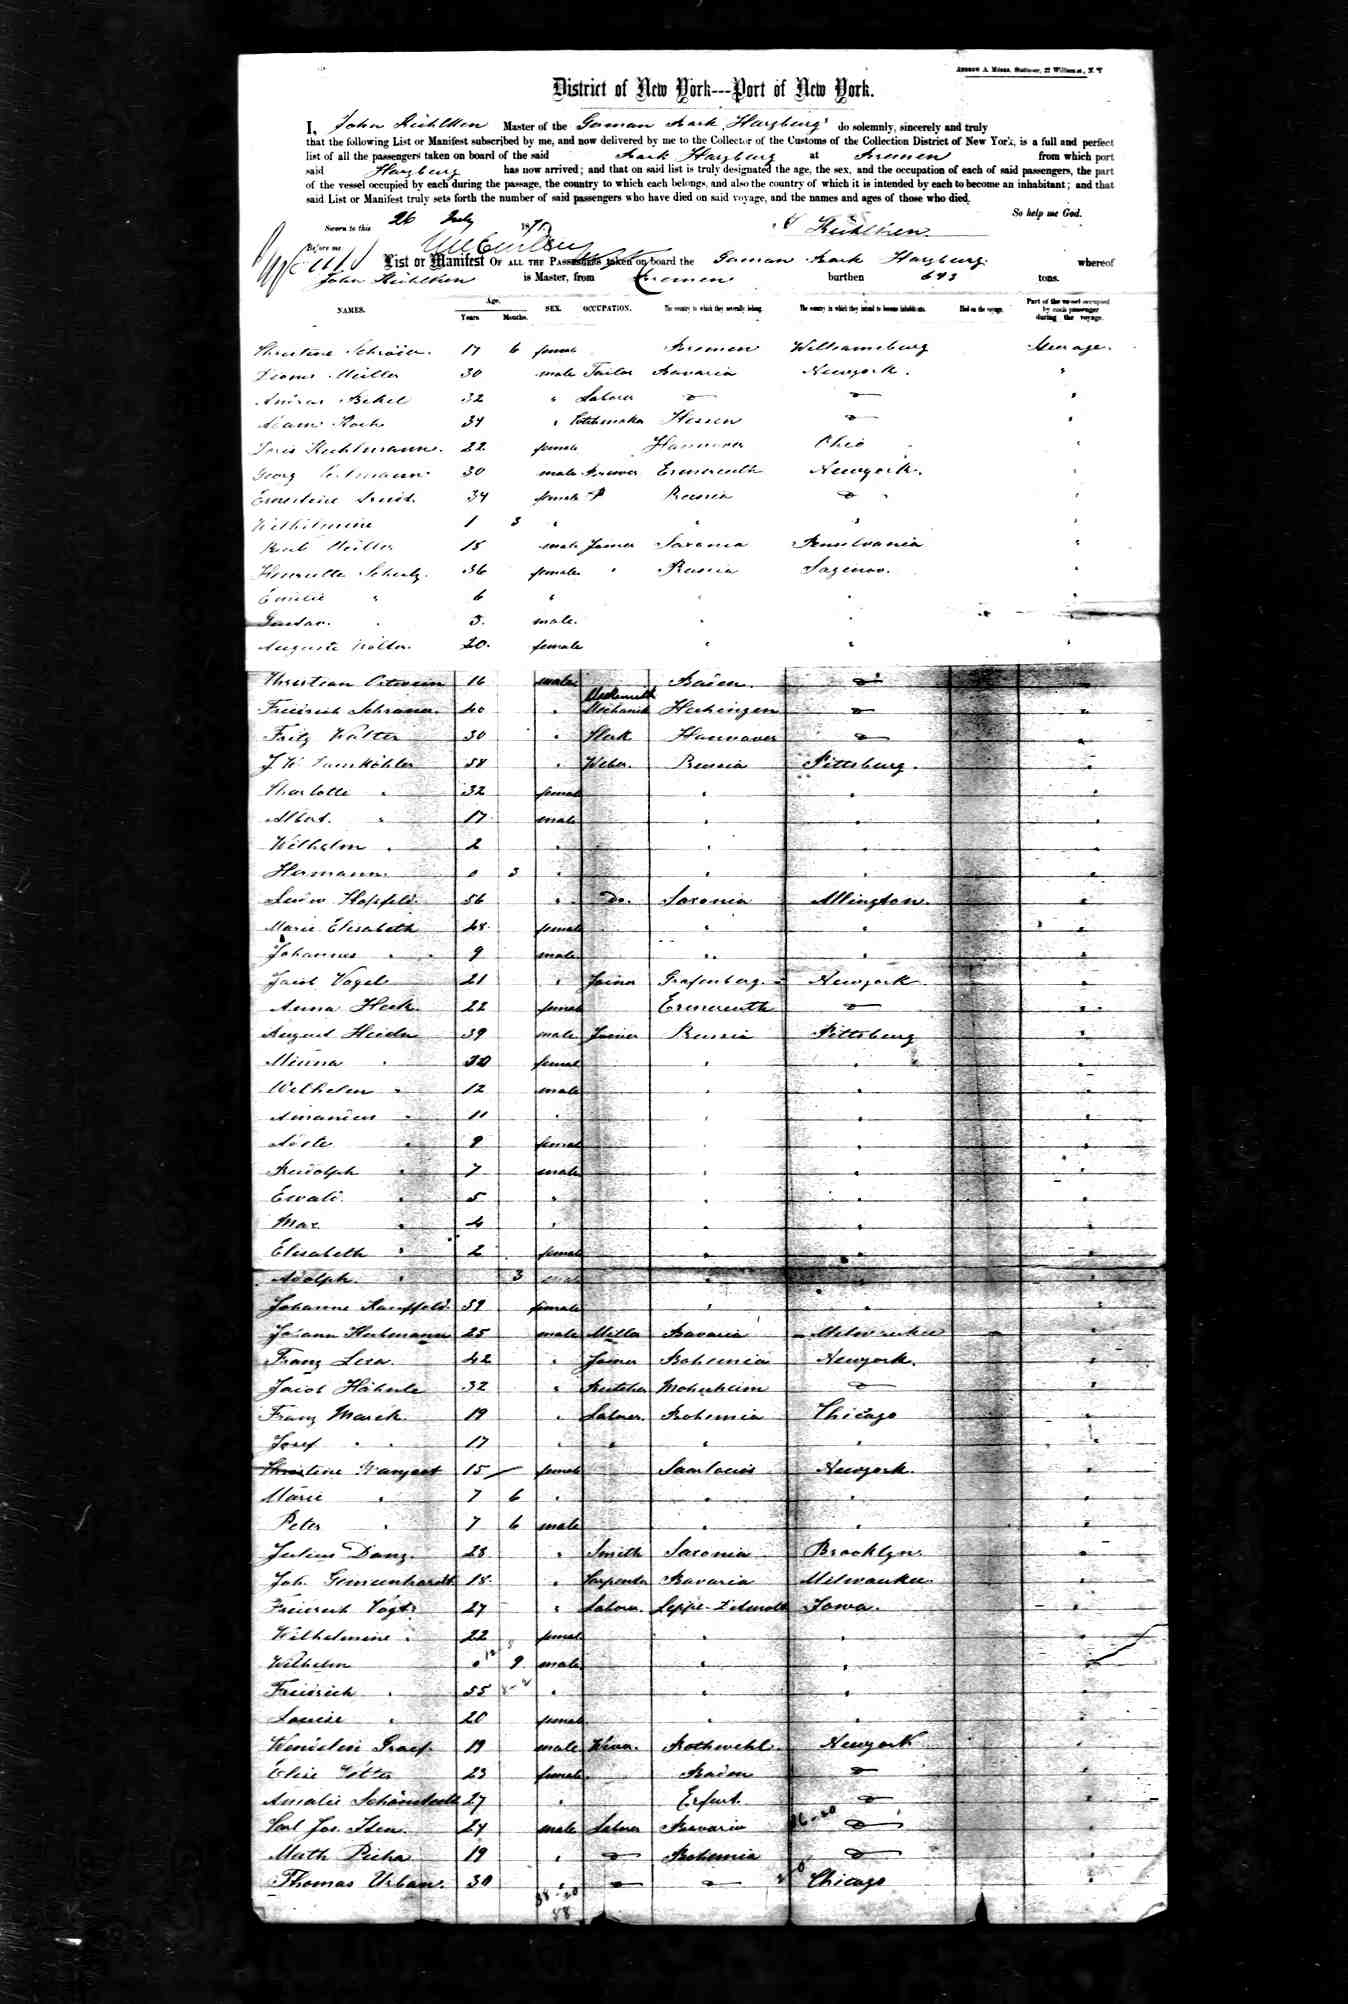 Andrew A. Mones, Stationer, 27 William st., N. Y
District of New York---Port of New York.
I, John Kuhlken Master of the German Bark "Harzburg" do solemnly, sincerely and truly
that the following List or Manifest subscribed by me, and now delivered by me to the Collector of the Customs of the Collection District of New York, is a full and perfect
list of all the passengers taken on board of the said Bark Harzburg at Bremen from which port
said Harzburg has now arrived; and that on said list is truly designated the age, the sex, and the occupation of each of said passengers, the part
of the vessel occupied by each during the passage, the country to which each belongs, and also the country of which it is intended by each to become an inhabitant; and that
said List or Manifest truly sets forth the number of said passengers who have died on said voyage, and the names and ages of those who died.
So help me God.
Sworn to this 26 July 187
J Kuhlken
Before me
List or Manifest OF ALL THE PASSENGERS taken on board the German Bark Harzburg whereof
John Kuhlken is Master, from Bremen burthen 643 tons.
NAMES. Age. Years Months. SEX. OCCUPATION. The country to which they severally belong. The country in which they intend to become inhabitants. Died on the voyage. Part of the vessel occupied by each passenger during the voyage.
Christine Schröder. 17 6 female Bremen Williamsburg Steerage.
Müller 30 male Tailor Bavaria Newyork. "
Andreas Bekel 32 " Laborer do do "
Adam Koch 34 " Hessen do "
Doris Kuhlmann. 22 female Hannover Ohio "
Georg 30 male Brewer Newyork. "
Ernestine 34 female Prussia do "
Wilhelmine 1 3 " " " "
Müller 18 male Joiner Saxonia Pensilvania "
Henriette Schulz. 36 female " Prussia Saginaw. "
Emilie " 6 " " " "
Gustav. " 3. male. " " "
Auguste Wolter. 20. female " " "
Christian 16 male Baden. do "
Friedrich Schramm. 40 " Mechanik Hechingen do "
Fritz Walter 30 " Clerk Hannover do "
58 " Weber. Prussia Pittsburg. "
Charlotte " 32 female " " "
Albert. " 17 male " " "
Wilhelm " 2 " " " "
Hermann 0 3 " " " "
Hopfeld 56 " Do. Saxonia Allington. "
Marie Elisabeth 48 female " " "
Johannes " 9 male " " "
Jacob Vogel 21 " Joiner Grafenberg Newyork "
Anna Heck. 22 female do "
August Heider 39 male Joiner Prussia Pittsburg "
Minna " 30 female " " "
Wilhelm " 12 male " " "
Amandus " 11 " " " "
9 female " " "
Rudolph " 7 male " " "
Ewald. " 5 " " " "
Max " 4 " " " "
Elisabeth " 2 female " " "
Adolph. " 3 male " " "
Johanne Kauffeld. 59 female " " "
Johann Heckmann 25 male Miller Bavaria Milwaukee "
Franz Lesa. 42 " Joiner Bohemia Newyork. "
Jacob Häberle 32 " Butcher do "
Franz Marek 19 " Laborer. Bohemia Chicago "
Josef " 17 " " " " "
Christine 15 female Saarlouis Newyork. "
Marie " 7 6 " " " "
Peter " 7 6 male " " "
Julius Danz. 28 " Smith Saxonia Brooklyn. "
Joh. Gemeinhardt 18. " Carpenter Bavaria Milwaukee. "
Friedrich Vogt. 27 " Laborer. Lippe-Detmold Iowa. "
Wilhelmine " 22 female " " "
Wilhelm 0 9 male " " "
Friedrich " 55 " " " "
Louise " 20 female " " "
Wendelin Graef 19 male Rothweil Newyork "
Elise 23 female Baden do "
Amalie Schönstedt 27 " Erfurt. do "
Carl Jos. Isen. 24 male Laborer Bavaria do "
Math Picha 19 " do Bohemia do "
Thomas Urban. 30 " do do Chicago "
88